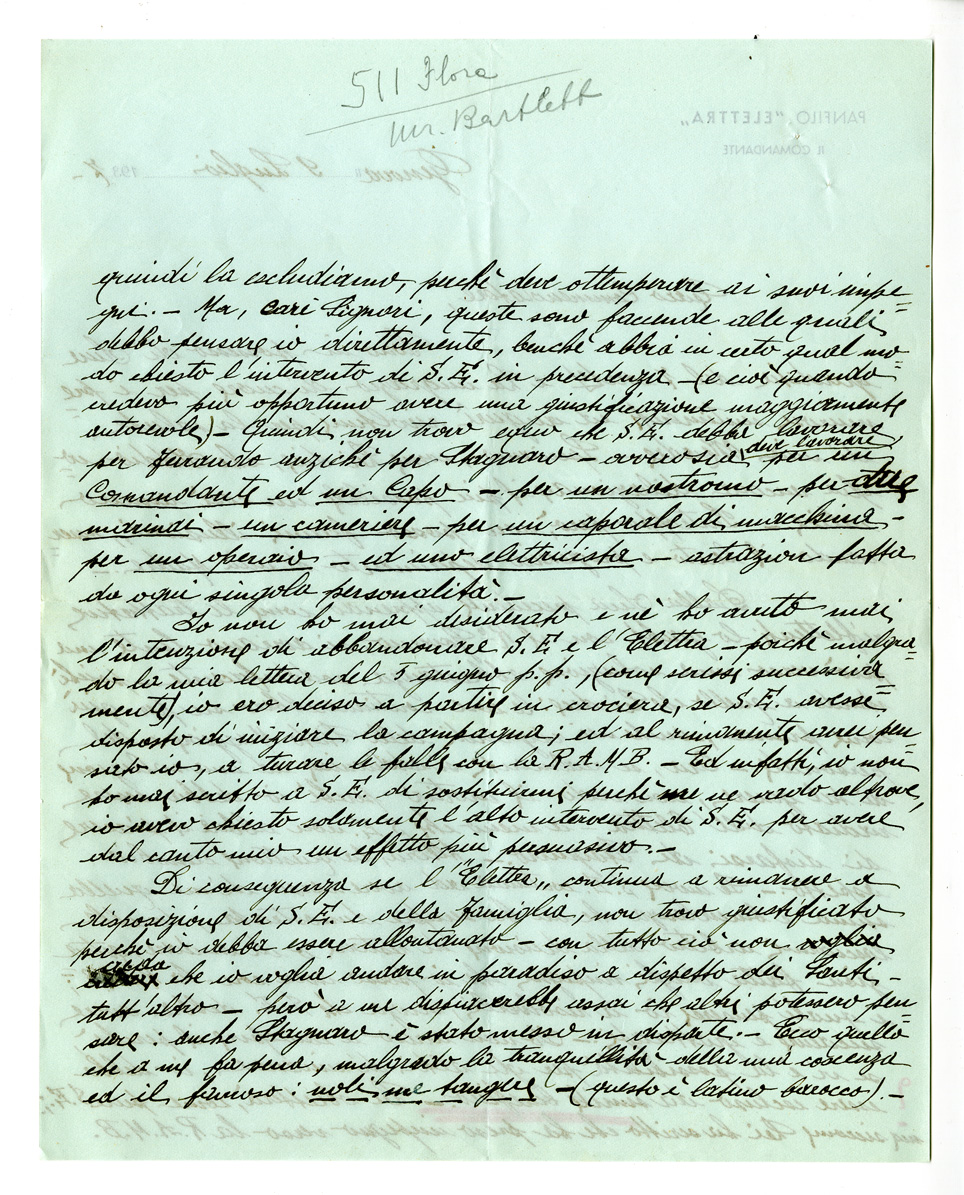 511 Flora
Mr. Bartlett
PANFILO "ELETTRA"
IL COMANDANTE
Genova 9 Luglio 1937-
quindi la escludiamo, perchè deve ottemperare ai suoi impe=
gni. - Ma, cari Signori, queste sono faccende alle quali
debbo pensare io direttamente, benchè abbia in certo qual mo=
do chiesto l'intervento di S.E. in precedenza - (e cioè quando
credevo più opportuno avere una giustificazione maggiamente
autorevole) - Quindi non trovo equo che S.E. debba lavorare
per Furando anzichè per Stagnaro - ovverosia, deve lavorare per un
Comandante ed un Capo - per un nostromo - per due
marinai - un cameriere - per un caporale di macchina -
per un operaio - ed uno elettricista - astrazion fatta
da ogni singola personalità. -
Io non ho mai desiderato e nè ho avuto mai
l'intenzione di abbandonare S.E. e l'Elettra - poichè malgra=
do la mia lettera del 5 giugno p.p., (come scrissi successiva=
mente), io ero deciso a partire in crociera, se S.E. avesse
disposto di iniziare la campagna; ed al rimanente avrei pen=
sato io, a turare le falle con la R.A.M.B. - Ed infatti, io non
ho mai scritto a S.E. di sostituirmi perchè me ne vado altrove,
io avevo chiesto solamente l'alto intervento di S.E. per avere
dal canto mio un effetto più persuasivo. -
Di conseguenza se l'"Elettra" continua a rimanere a
disposizione di S.E. e della Famiglia, non trovo giustificato
perchè io debba essere allontanato - con tutto ciò non voglio
creda che io voglia andare in paradiso a dispetto dei Santi -
tutt'altro - però a me dispiacerebbe assai che altri potessero pen=
sare: anche Stagnaro è stato messo in disparte. - Ecco quello
che a me fa pena, malgrado la tranquillità della mia coscenza
ed il famoso: noli me tangere - (questo è latino barocco). -